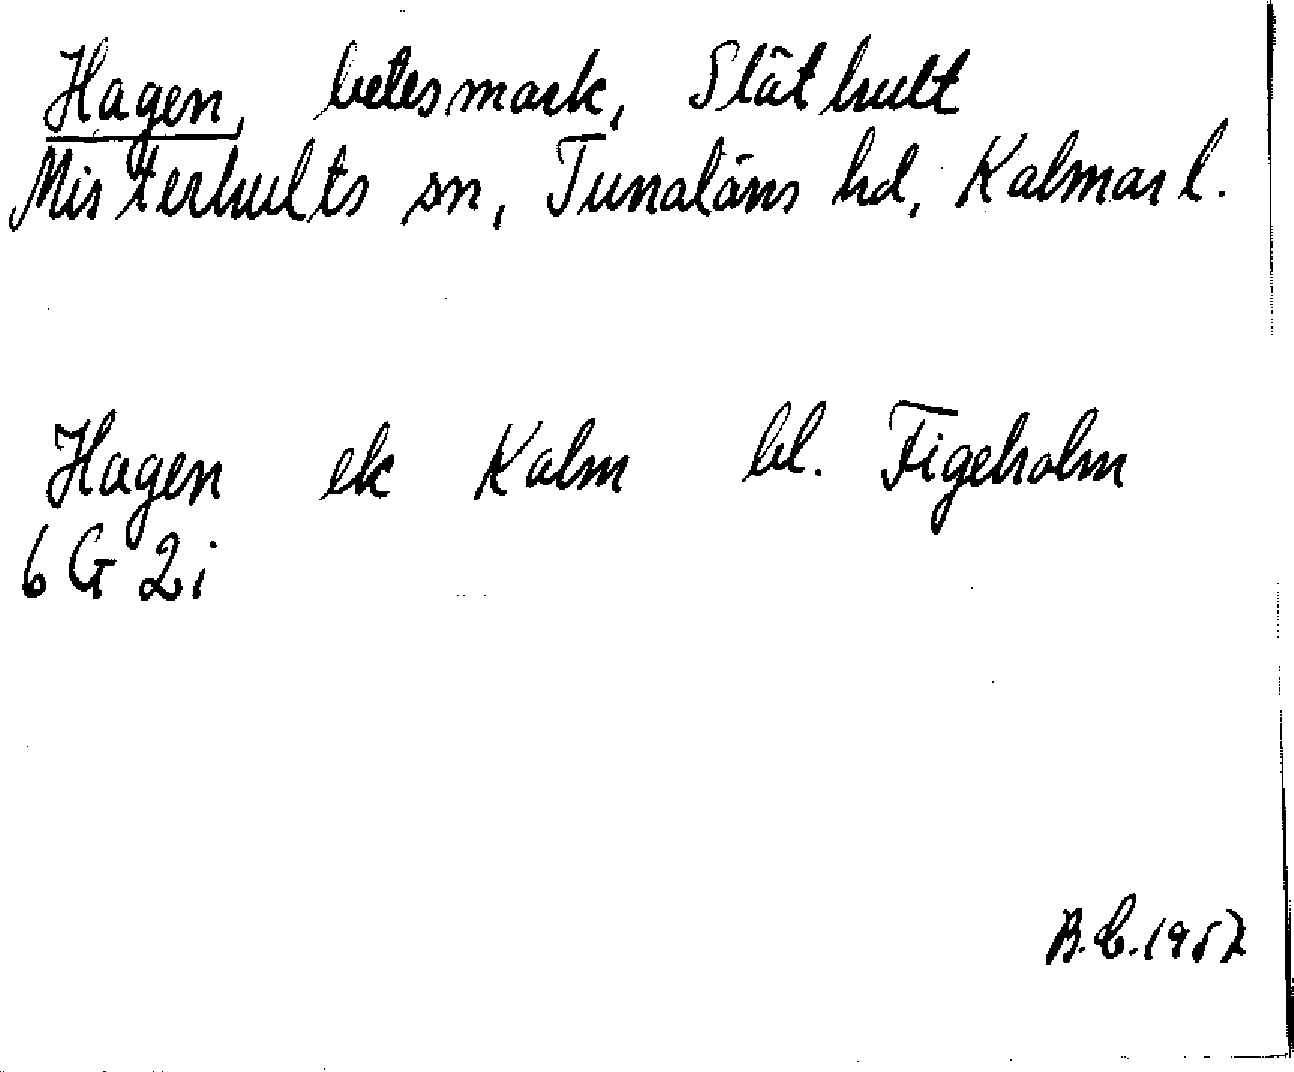 Hagen, betesmark, Släthult
Misterhults sn, Tunaläns hd, Kalmar l.
Hagen ek Kalm bl. Figeholm
6 G 2i
B.C. 1957